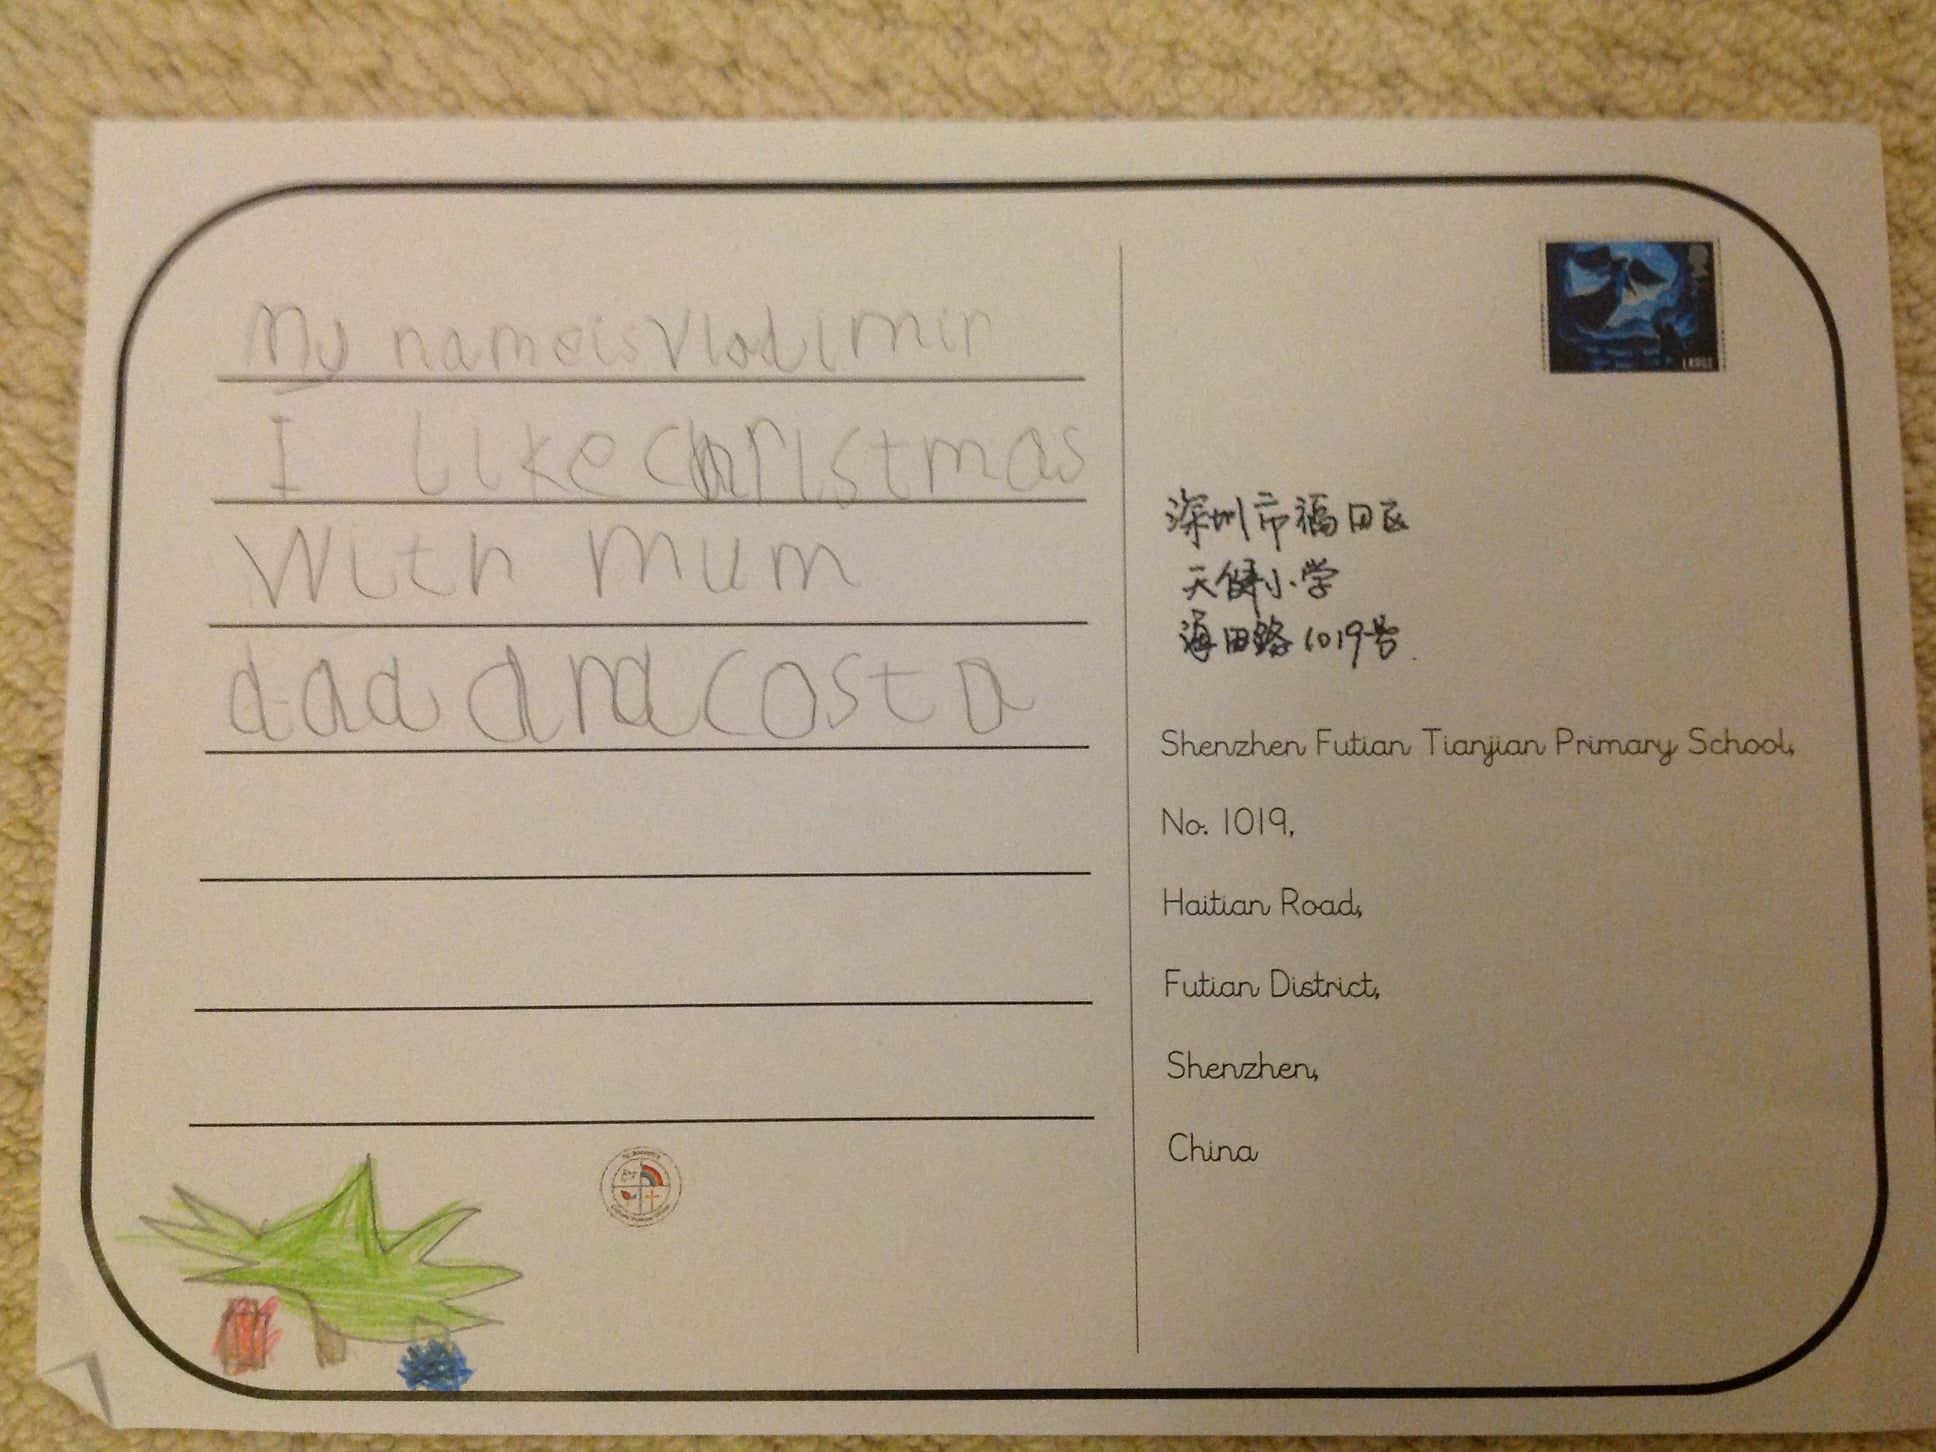 My name is Vladimir
I like christmas
With mum
dad and costa
LARGE
深圳市福田区
天健小学
海田路1019号
Shenzhen Futian Tianjian Primary School,
No. 1019,
Haitian Road,
Futian District,
Shenzhen,
China